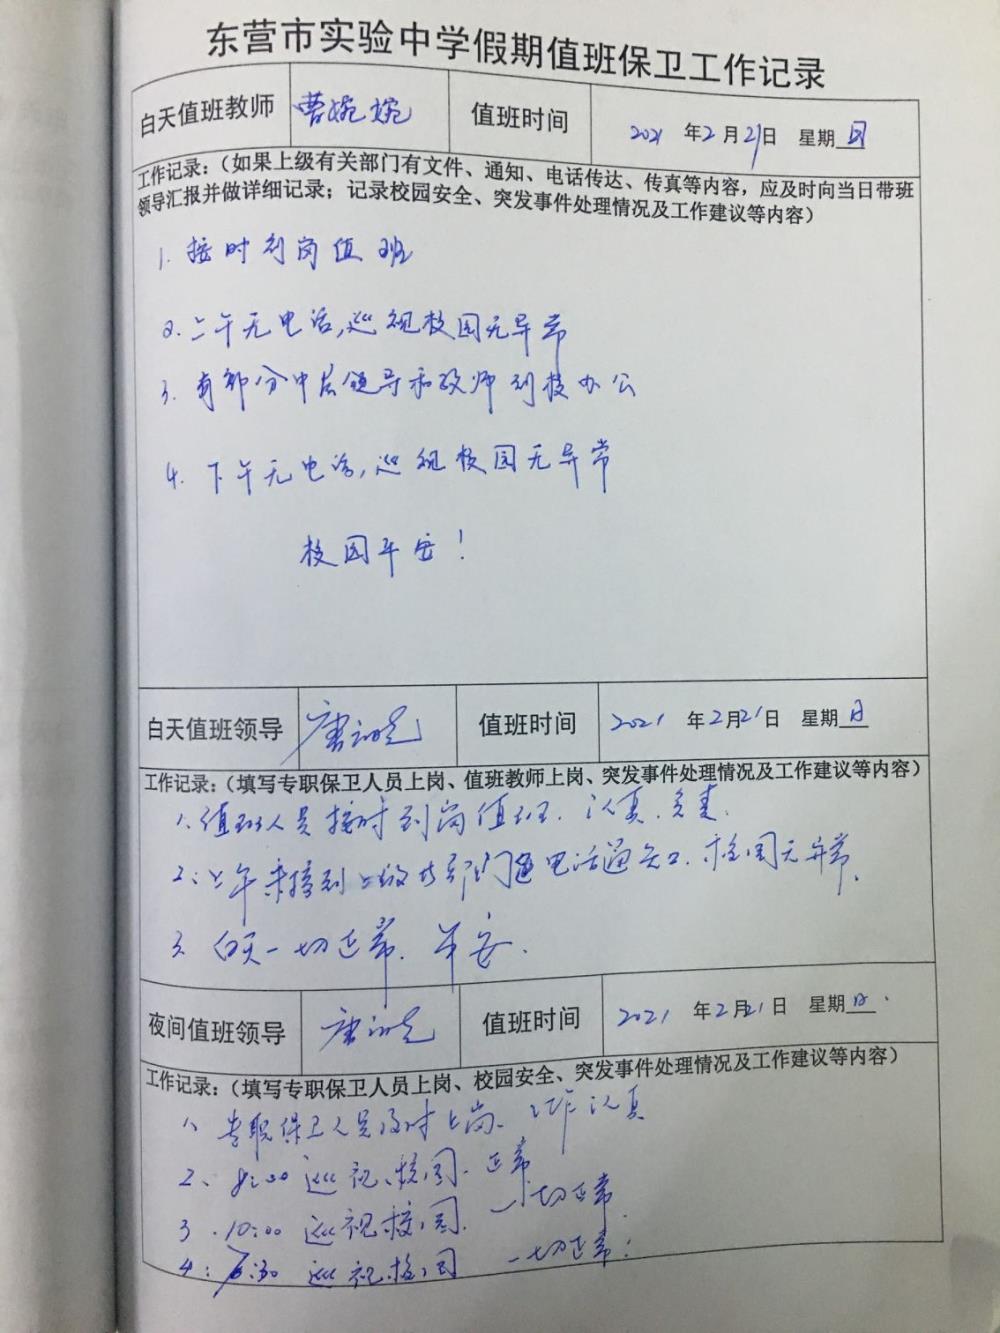 东营市实验中学假期值班保卫工作记录
白天值班教师 曹婉婉 值班时间 2021 年 2 月 21 日 星期 日
工作记录：（如果上级有关部门有文件、通知、电话传达、传真等内容，应及时向当日带班
领导汇报并做详细记录；记录校园安全、突发事件处理情况及工作建议等内容）
1. 按时到岗值班
2. 上午无电话，巡视校园无异常
3. 有部分中层领导和教师到校办公
4. 下午无电话，巡视校园无异常
校园平安！
白天值班领导 值班时间 2021 年 2 月 21 日 星期 日
工作记录：（填写专职保卫人员上岗、值班教师上岗、突发事件处理情况及工作建议等内容）
1. 值班人员按时到岗值班. 认真. 负责.
2: 上午未接到上级部门电话通知. 校园无异常.
3 白天一切正常. 平安.
夜间值班领导 值班时间 2021 年 2 月 21 日 星期 日
工作记录：（填写专职保卫人员上岗、校园安全、突发事件处理情况及工作建议等内容）
1、专职保卫人员及时上岗. 工作认真
2、8:00 巡视校园. 正常
3. 10:00 巡视校园. 一切正常
4: 6:30 巡视校园 一切正常.